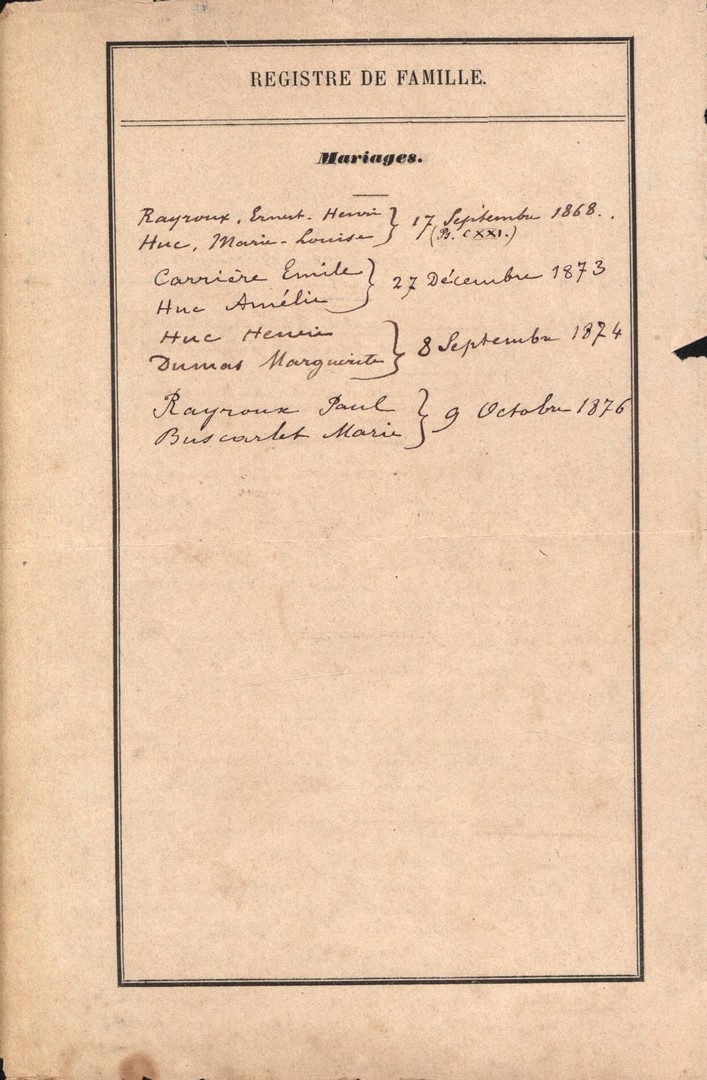 REGISTRE DE FAMILLE.
Mariages.
Rayroux, Ernest-Henri } 17 Septembre 1868.
Huc, Marie-Louise (Ps. CXXI.)
Carrière Emile } 27 Décembre 1873
Huc Amélie
Huc Henri
Dumas Marguerite } 8 Septembre 1874
Rayroux Paul } 9 Octobre 1876
Buscarlet Marie